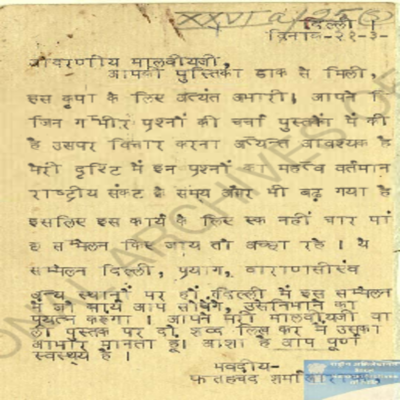 XXVI a/956
दिल्ली।
दिनांक-२१-३-
आदरणीय मालवीयजी,
आपकी पुस्तिका डाक से मिली,
इस कृपा के लिए अत्यंत अभारी। आपने
जिन गम्भीर प्रश्नों की चर्चा पुस्तक में की
है उसपर विचार करना अत्यन्त आवश्यक है
मेरी दृष्टि में इन प्रश्नों का महत्व वर्तमान
राष्ट्रीय संकट के समय और भी बढ़ गया है
इसलिए इस कार्य के लिए एक नहीं चार पां
च सम्मेलन किए जाय तो अच्छा रहे। ये
सम्मेलन दिल्ली, प्रयाग, वाराणसीएवं
अन्य स्थानों पर हों, दिल्ली में इस सम्मेलन
में जो कार्य आप सौंपेंगे, उसेनिभाने का
प्रयत्न करूंगा। आपने मेरी मालवीयजी वा
ली पुस्तक पर दो शब्द लिख कर मैं उसका
आभार मानता हूं। आशा है आप पूर्ण
स्वस्थ्य है।
भवदीय-
फतहचंद शर्मा